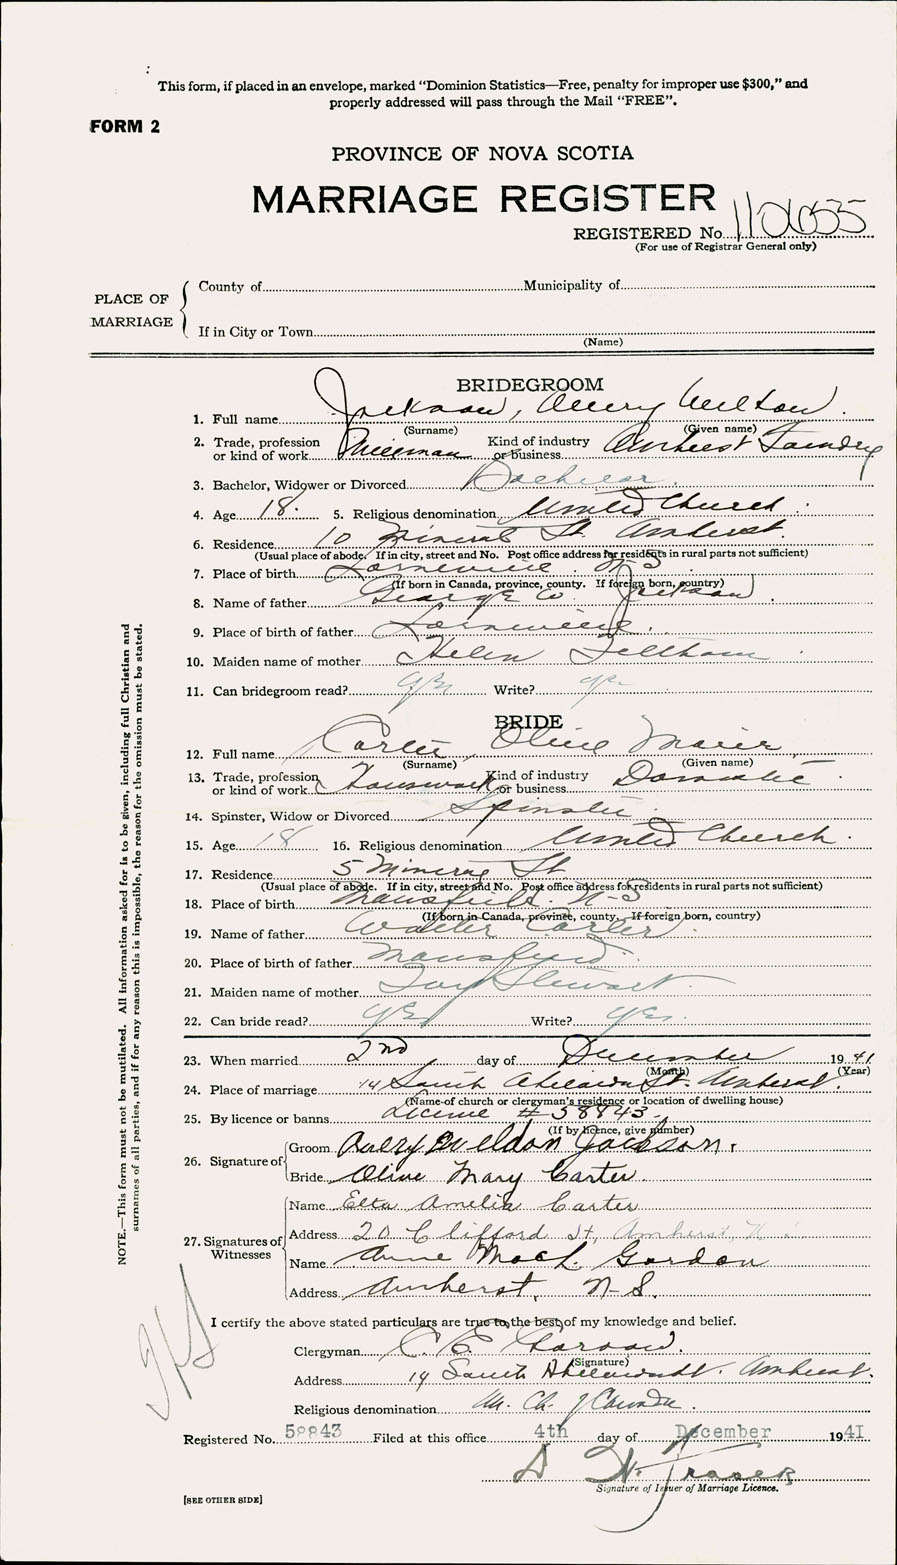 This form, if placed in an envelope, marked "Dominion Statistics—Free, penalty for improper use $300," and
properly addressed will pass through the Mail "FREE".
FORM 2
PROVINCE OF NOVA SCOTIA
MARRIAGE REGISTER
REGISTERED No.
(For use of Registrar General only)
PLACE OF MARRIAGE
County of Municipality of
If in City or Town
(Name)
BRIDEGROOM
1. Full name Jackson, Avery Weldon
(Surname) (Given name)
2. Trade, profession or kind of work Kind of industry or business Amherst Foundry
3. Bachelor, Widower or Divorced Bachelor
4. Age 18. 5. Religious denomination United Church
6. Residence 10 Mineral St. Amherst.
(Usual place of abode. If in city, street and No. Post office address for residents in rural parts not sufficient)
7. Place of birth Lorneville. N-S
(If born in Canada, province, county. If foreign born, country)
8. Name of father George W. Jackson
9. Place of birth of father Lorneville.
10. Maiden name of mother Helen
11. Can bridegroom read? yes Write? yes
BRIDE
12. Full name Carter, Olive
(Surname) (Given name)
13. Trade, profession or kind of work Housework Kind of industry or business Domestic.
14. Spinster, Widow or Divorced Spinster
15. Age 18 16. Religious denomination United Church.
17. Residence 5 Mineral St
(Usual place of abode. If in city, street and No. Post office address for residents in rural parts not sufficient)
18. Place of birth Mansfield. N-S
(If born in Canada, province, county. If foreign born, country)
19. Name of father Walter Carter
20. Place of birth of father Mansfield.
21. Maiden name of mother Stewart.
22. Can bride read? yes Write? yes.
23. When married 2nd day of December 1941
(Month) (Year)
24. Place of marriage 14 South St. Amherst.
(Name of church or clergyman's residence or location of dwelling house)
25. By licence or banns License # 58843.
(If by licence, give number)
26. Signature of
Groom Avery Weldon Jackson.
Bride Olive Mary Carter
27. Signatures of Witnesses
Name Elta Amelia Carter
Address 20 Clifford St, Amherst, N
Name Anne MacL. Gordon
Address Amherst, N-S.
I certify the above stated particulars are true to the best of my knowledge and belief.
Clergyman C. E.
(Signature)
Address 14 South Amherst.
Religious denomination Un. Ch. of Canada.
Registered No. 58843 Filed at this office 4th day of December 1941
D W. Fraser
Signature of Issuer of Marriage Licence.
[SEE OTHER SIDE]
NOTE.—This form must not be mutilated. All information asked for is to be given, including full Christian and
surnames of all parties, and if for any reason this is impossible, the reason for the omission must be stated.